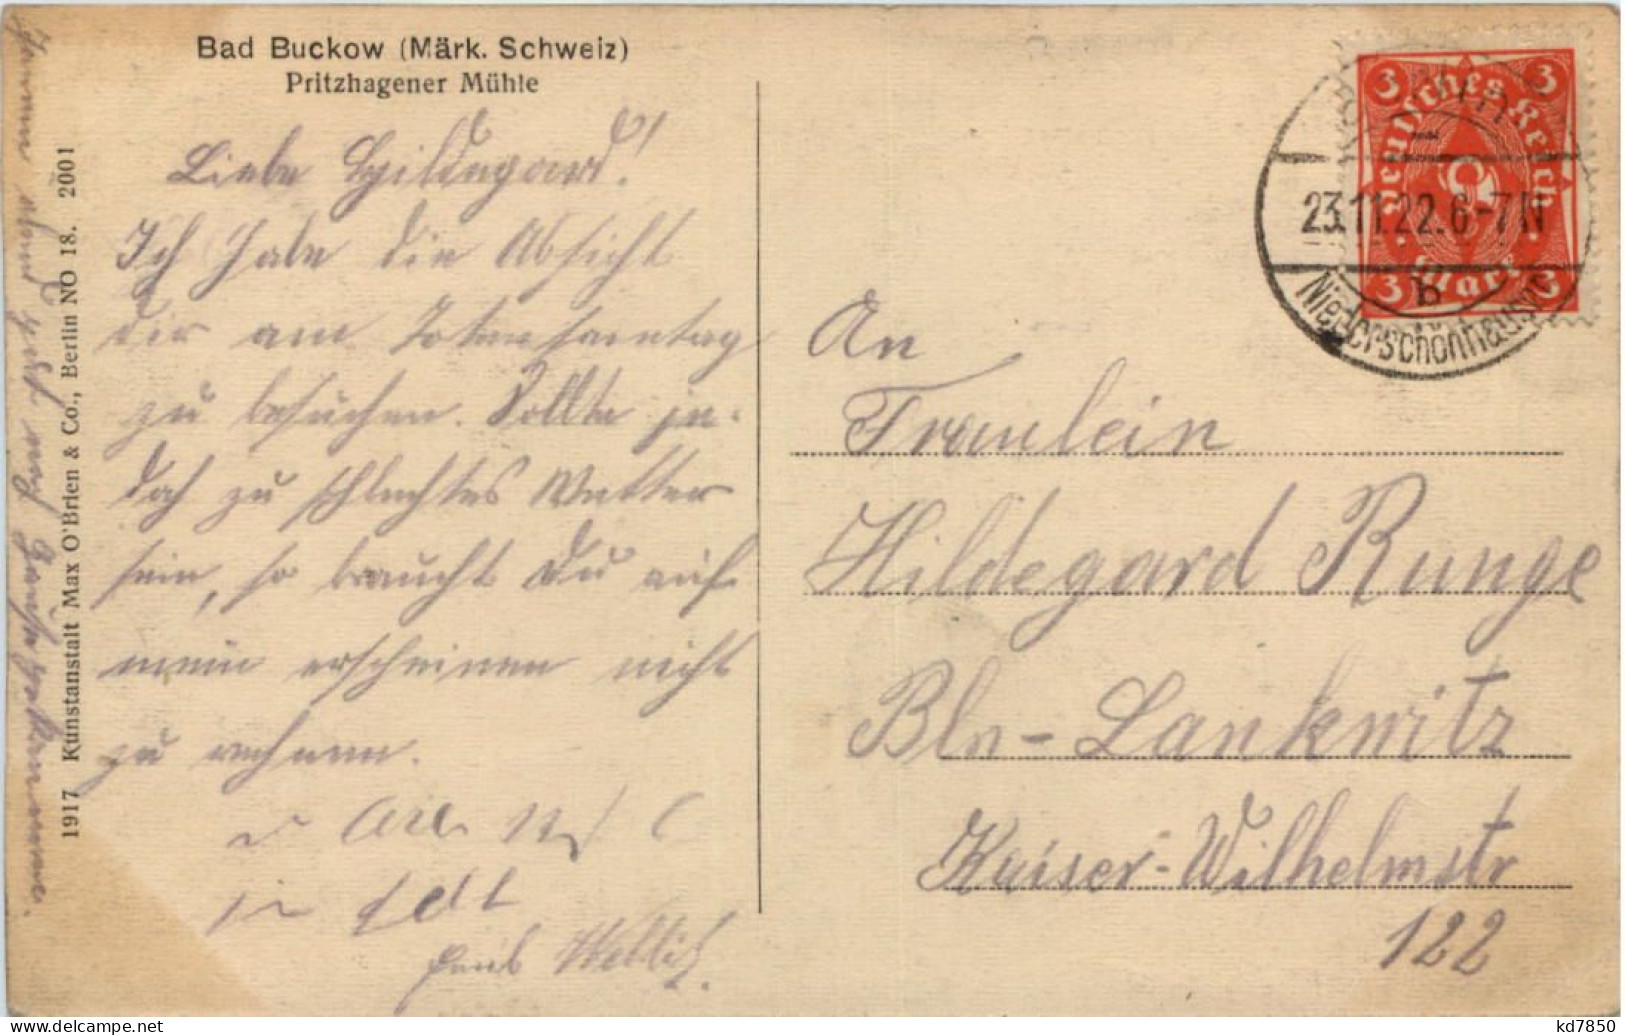 Bad Buckow (Märk. Schweiz)
Pritzhagener Mühle
Liebe Hildegard!
Ich habe die Absicht
dir am Totensonntag
zu besuchen. Sollte je-
doch zu schlechtes Wetter
sein, so brauchst Du auf
mein erscheinen nicht
zu rechnen.
1917 Kunstanstalt Max O'Brien & Co., Berlin NO 18. 2001
An
Fraulein
Hildegard Runge
Bln-Lankwitz
Kaiser-Wilhelmstr
122
3 3
Deutsches Reich
3
Mark
3 3
Berlin
23.11.22.6-7N
b
Niederschönhausen
kd7850